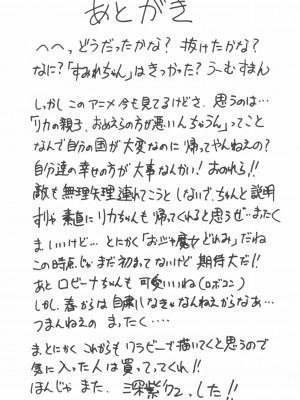 あとがき
へへっ どうだったかな? 抜けたかな?
なに?「すみれちゃん」はきつかった? うーむすまん
しかし このアニメ今も見てるけどさ、思うのは…
「リカの親子、おめえらの方が悪いんちゃうん」ってこと
なんで自分の国が大変なのに 帰ってやんねえの?
自分達の幸せの方が大事なんかい! おのれら!!
敵も無理矢理連れてこうとしないで、ちゃんと説明
すりゃ 素直にリカちゃんも 帰ってくれると思うぜ…まったく
ま いいけど… とにかく「おジャ魔女どれみ」だね
この時点じゃまだ初まってないけど 期待大だ!!
あと ロビーナちゃんも 可愛いいね(ロボコン)
しかし 春からは 自粛しなきゃなんねえからなあ…
つまんねえの まったく‥‥
まとにかく これからも ワラビーで描いてくと思うので
気に入った人は買ってってくれ!!
ほんじゃ また、深紫 した!!